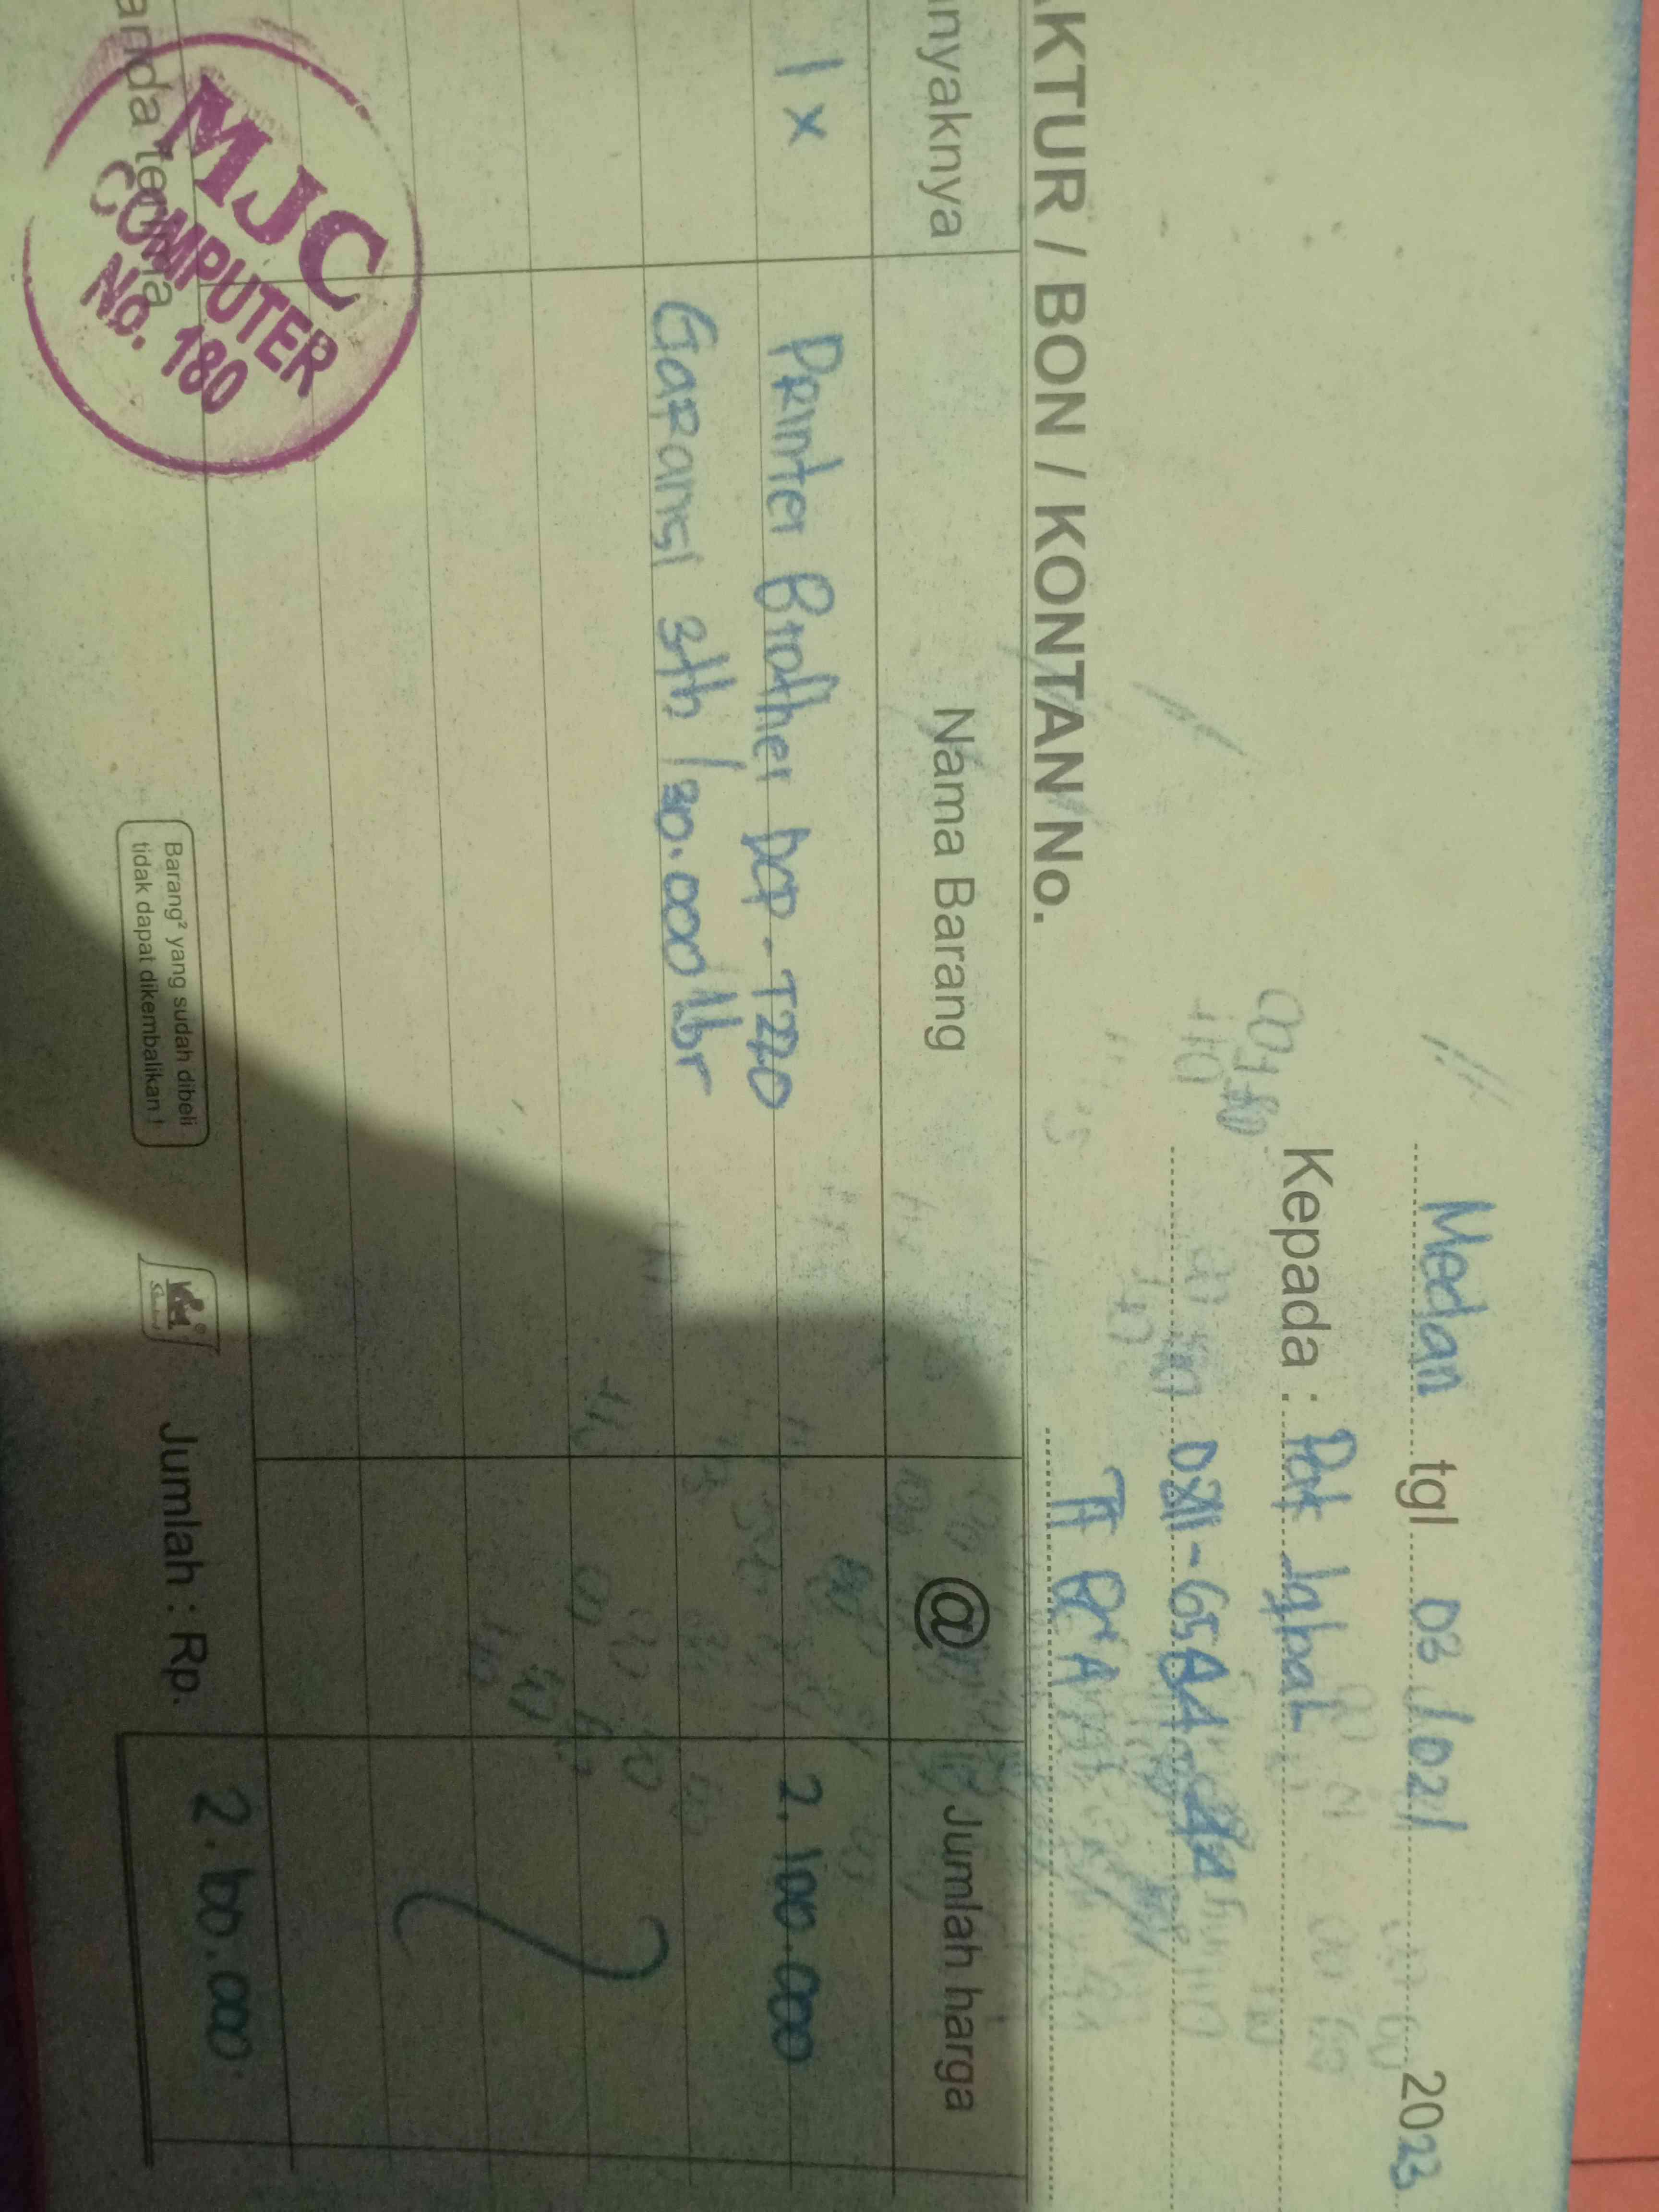 Medan tgl 03 / 02 / 2023
Kepada : Pak Iqbal
FAKTUR / BON / KONTAN No.
nyaknya Nama Barang @ Jumlah harga
1 x Printer Brother DCP - T220 2.100.000
Garansi 3th / 30.000 lbr
Tanda terima
MJC
COMPUTER
No. 180
Barang² yang sudah dibeli
tidak dapat dikembalikan !
Jumlah : Rp. 2.100.000